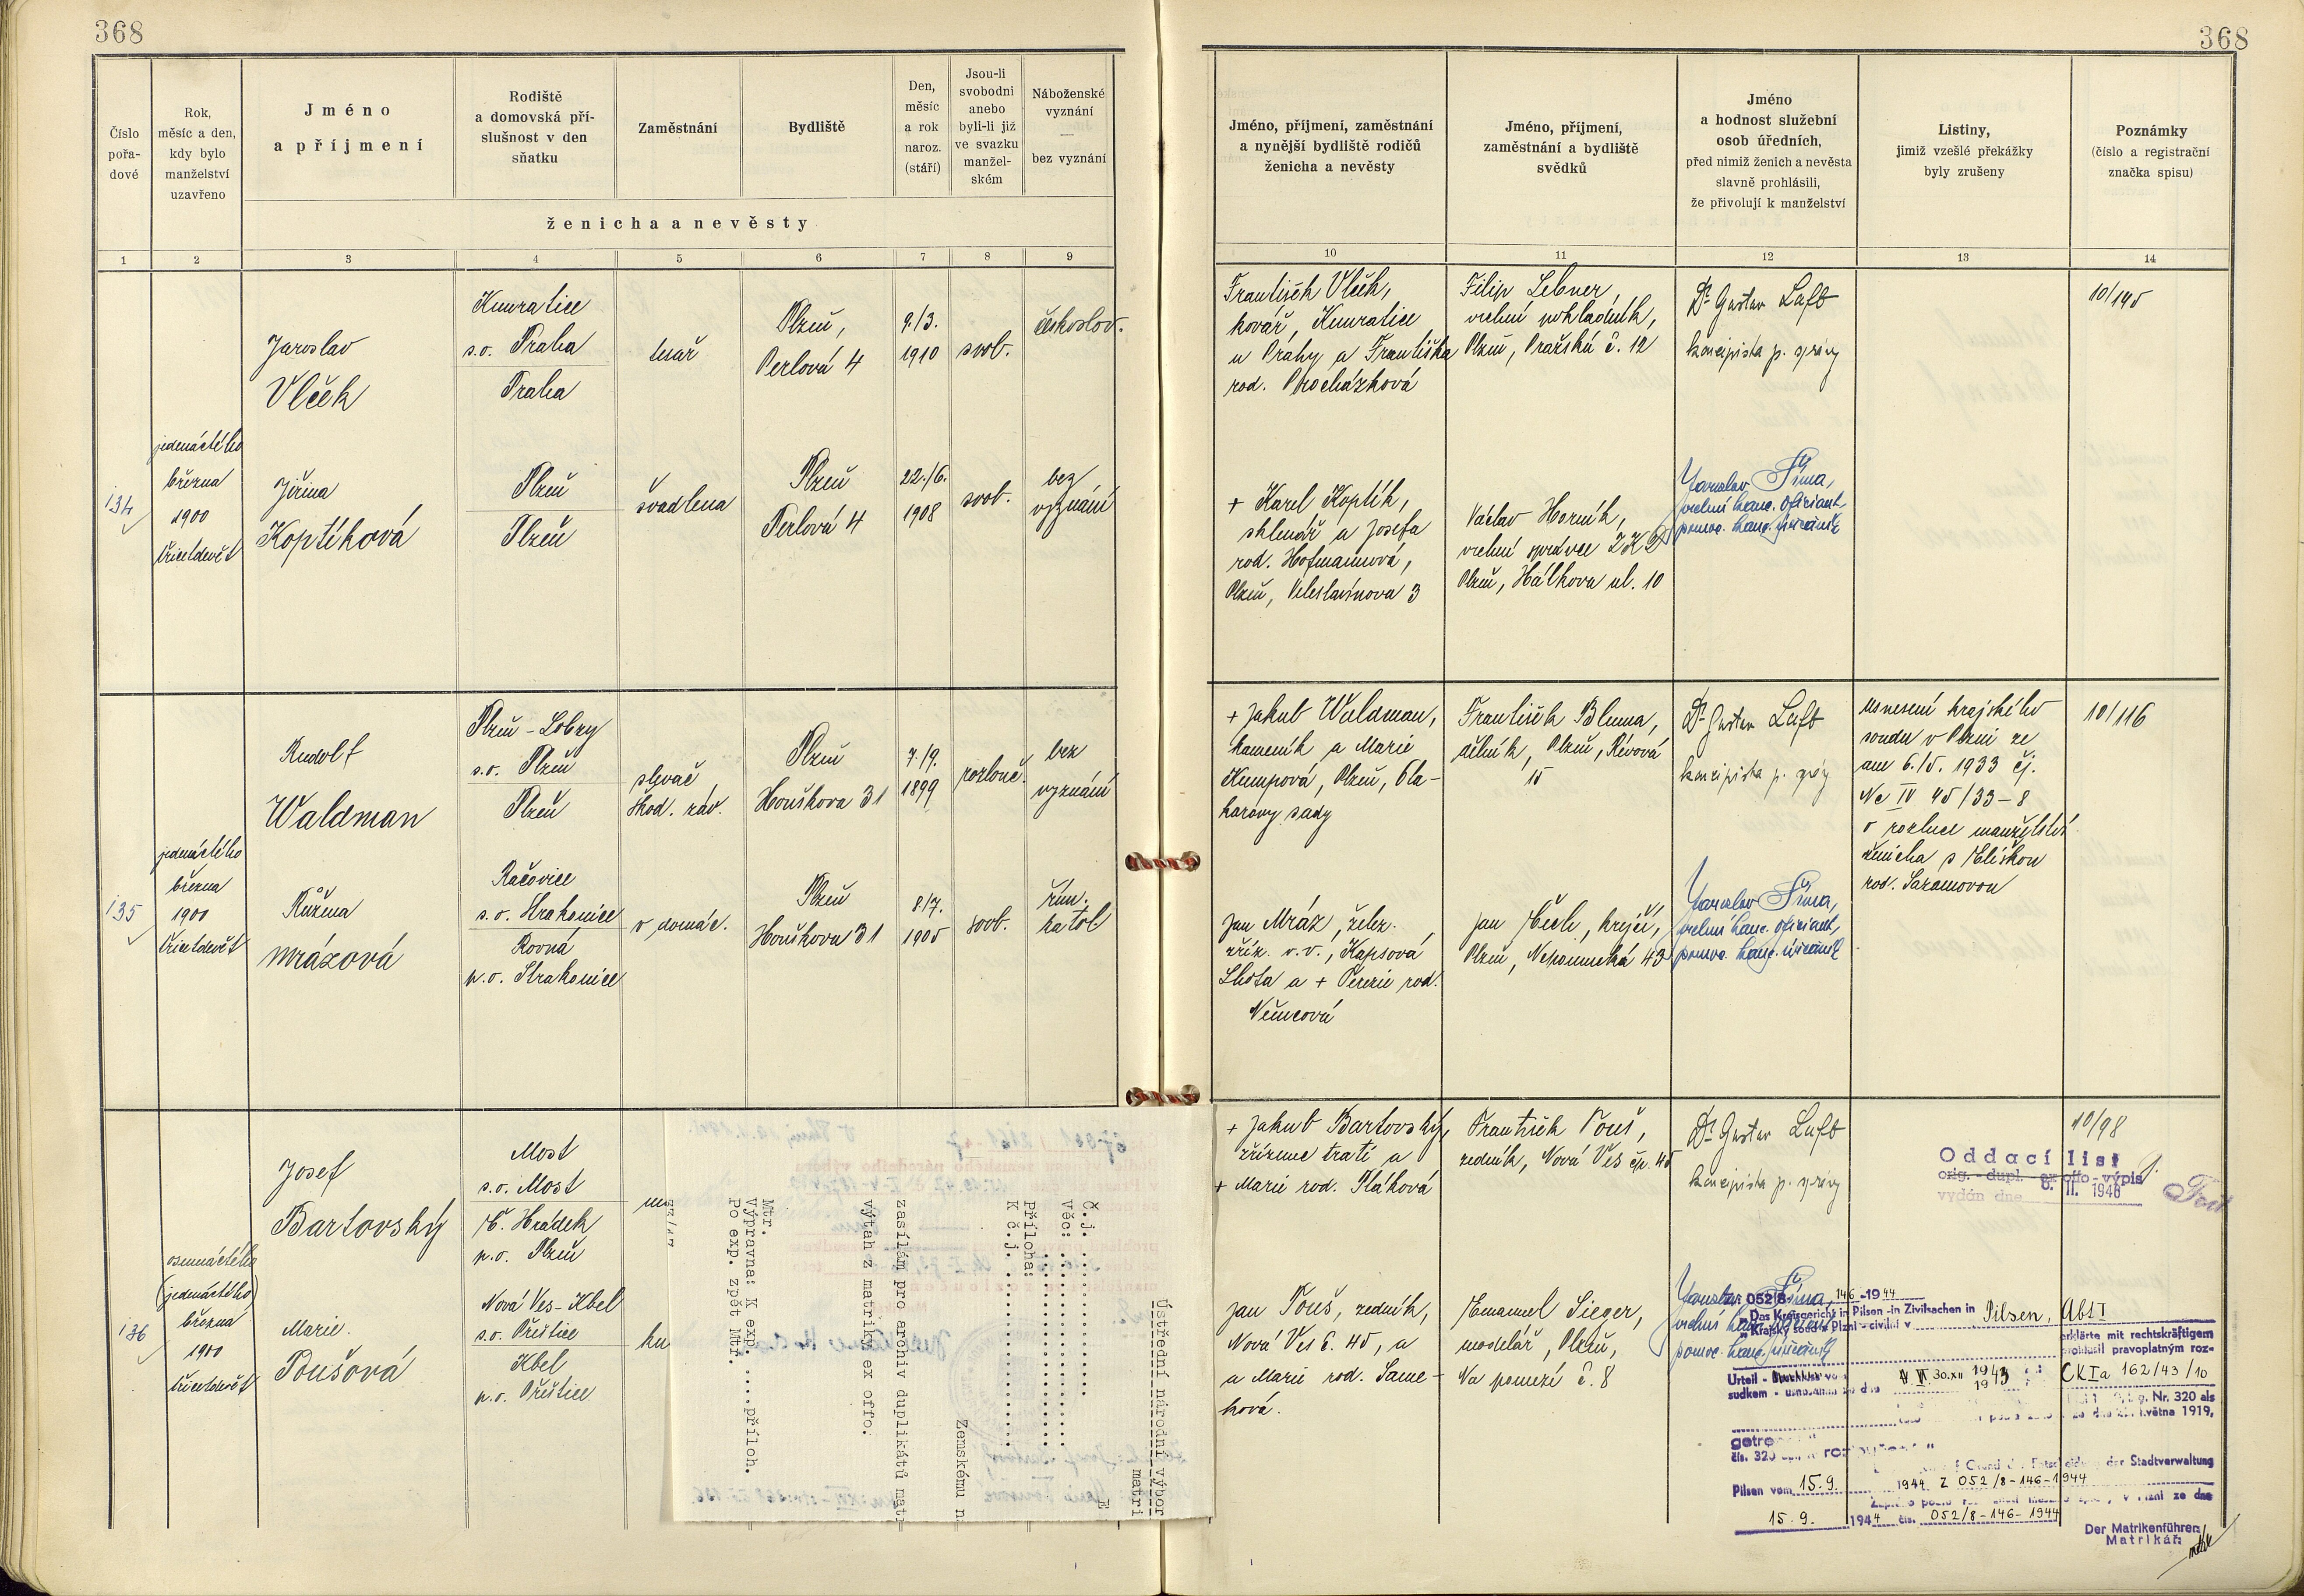 368
368
Číslo
pořa-
dové
Rok,
měsíc a den,
kdy bylo
manželství
uzavřeno
Jméno
a příjmení
Rodiště
a domovská pří-
slušnost v den
sňatku
Zaměstnání
Bydliště
Den,
měsíc
a rok
naroz.
(stáří)
Jsou-li
svobodni
anebo
byli-li již
ve svazku
manžel-
ském
Náboženské
vyznání
—
bez vyznání
ženicha a nevěsty
1 2 3 4 5 6 7 8 9
Jméno, příjmení, zaměstnání
a nynější bydliště rodičů
ženicha a nevěsty
Jméno, příjmení,
zaměstnání a bydliště
svědků
Jméno
a hodnost služební
osob úředních,
před nimiž ženich a nevěsta
slavně prohlásili,
že přivolují k manželství
Listiny,
jimiž vzešlé překážky
byly zrušeny
Poznámky
(číslo a registrační
značka spisu)
10 11 12 13 14
134
jedenáctého
března
1900
třicetdevět
Jaroslav
Vlček
Kunratice
s.o. Praha
Praha
tesař
Plzeň,
Perlová 4
9./3.
1910
svob.
českoslov.
Jiřina
Koptíková
Plzeň
Plzeň
švadlena
Plzeň
Perlová 4
22./6.
1908
svob.
bez
vyznání
František Vlček,
kovář, Kunratice
u Prahy a Františka
rod. Procházková
+ Karel Koptík,
sklenář a Josefa
rod. Hofmannová,
Plzeň, Veleslavínova 3
Filip Lebner,
vrchní pokladník,
Plzeň, Pražská č. 12
Václav Horník,
vrchní správce
Plzeň, Hálkova ul. 10
Dr Gustav Luft
koncipista p. správy
Jaroslav Šíma,
vrchní kanc. oficiant,
pomoc. kanc. úředník
10/195
135
jedenáctého
března
1900
třicetdevět
Rudolf
Waldman
Plzeň - Lobzy
s.o. Plzeň
Plzeň
slevač
Škod. záv.
Plzeň
Houškova 31
7./9.
1899
rozlouč.
bez
vyznání
Růžena
Mrázová
Račovice
s.o. Strakonice
Rovná
p.o. Strakonice
v domác.
Plzeň
Houškova 31
8/7.
1905
svob.
řím.
katol
+ Jakub Waldman,
kameník a Marie
Kumpová, Plzeň,
sady
Jan Mráz, želez.
zříz. v.v., Kapsová
Lhota a + Terezie rod.
Němcová
František Bluma,
dělník, Plzeň, Révová
15
Jan Čech, krejčí,
Plzeň, Nepomucká 43
Dr Gustav Luft
koncipista p. správy
Jaroslav Šíma,
vrchní kanc. oficiant,
pomoc. kanc. úředník
usnesení krajského
soudu v Plzni ze
dne 6./5. 1933 čj.
Nc IV 45/33-8
o rozluce manželství
ženicha s Eliškou
rod. Saramovou
10/116
136
osmnáctého
(jedenáctého)
března
1900
třicetdevět
Josef
Bartovský
Most
s.o. Most
Č. Hrádek
p.o. Plzeň
Marie
Toušová
Nová Ves - Kbel
s.o. Přeštice
Kbel
p.o. Přeštice
Ústřední národní výbor
matri
Č.j.
Věc:
Příloha:
K č.j.
Zemskému n
zasílám pro archiv duplikátů mat
výtah z matriky ex offo.
Mtr.
Výpravna: K exp. ....příloh.
Po exp. zpět Mtr.
+ Jakub Bartovský,
zřízenec trati a
+ Marie rod. Pláková
Jan Touš, ředník,
Nová Ves č. 45, a
a Marie rod. Same-
ková.
František Touš,
ředník, Nová Ves čp. 45
Emanuel Sieger,
modelář, Plzeň,
Na pomezí č. 8
Dr Gustav Luft
koncipista p. správy
10/98
Oddací list
orig. - dupl. - ex offo - výpis
vydán dne 6. II. 1946
052/8-146-1944
Das Kreisgericht in Pilsen - in Zivilsachen in Pilsen, Abt I
Krajský soud v Plzni - civilní v
erklärte mit rechtskräftigem
prohlásil pravoplatným roz-
Urteil - Beschluss vom 30.XII 1943 CK Ia 162/43/10
sudkem - usnesením ze dne
Nr. 320 als
května 1919,
getre
čís. 320
der Stadtverwaltung
Pilsen vom 15.9. 1944 Z 052/8-146-1944
v Plzni ze dne
15.9. 1944 čís. 052/8-146-1944
Der Matrikenführer:
Matrikář: